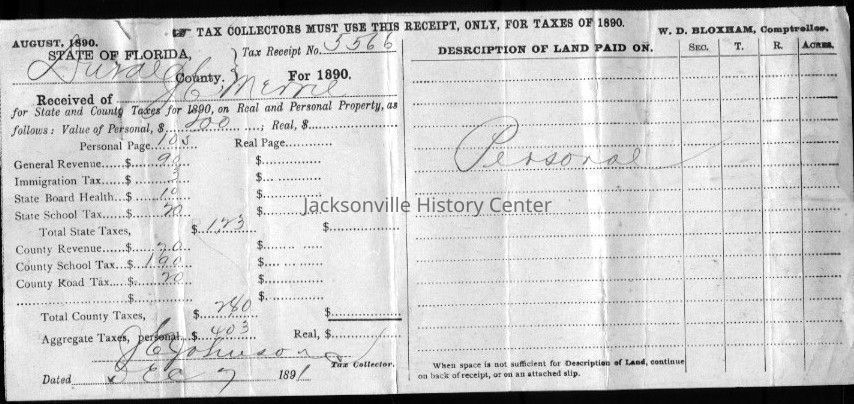 TAX COLLECTORS MUST USE THIS RECEIPT, ONLY, FOR TAXES OF 1890.
W. D. BLOXHAM, Comptroller.
AUGUST, 1890.
STATE OF FLORIDA,
Tax Receipt No. 3566
Duval County. For 1890.
Received of J. C. Merril
for State and County Taxes for 1890, on Real and Personal Property, as
follows: Value of Personal, $ 200 ; Real, $
Personal Page 103 Real Page
General Revenue $ 90 $
Immigration Tax $ 3 $
State Board Health $ 10 $
State School Tax $ 20 $
Total State Taxes, $ 1.23 $
County Revenue $ 70 $
County School Tax $ 1 90 $
County Road Tax $ 20 $
$ $
Total County Taxes, $ 280 $
Aggregate Taxes, personal $ 403 Real, $
J C Johnson
Tax Collector.
Dated Dec 7 1891
DESRCIPTION OF LAND PAID ON. SEC. T. R. ACRES.
Personal
When space is not sufficient for Description of Land, continue
on back of receipt, or on an attached slip.
Jacksonville History Center